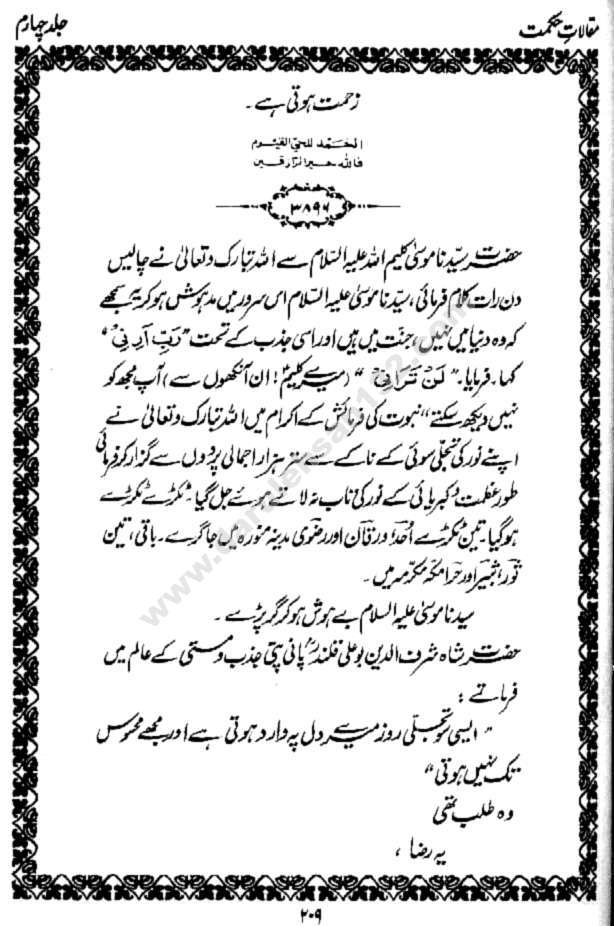 مقالاتِ حکمت
جلد چہارم
زحمت ہوتی ہے۔
الحمد للحی القیوم
فاللہ خیر الرازقین
۳۸۹۶
حضرت سیّدنا موسیٰ کلیم اللہ علیہ السّلام سے اللہ تبارک و تعالیٰ نے چالیس
دن رات کلام فرمائی، سیّدنا موسیٰ علیہ السّلام اس سرور میں مدہوش ہو کر یہ سمجھے
کہ وہ دنیا میں نہیں، جنت میں ہیں اور اسی جذب کے تحت ”رَبِّ اَرِنِیْ“
کہا۔ فرمایا۔ ”لَنْ تَرَانِیْ“ (میرے کلیمؑ! ان آنکھوں سے) آپ مجھ کو
نہیں دیکھ سکتے“ نبوت کی فرمائش کے اکرام میں اللہ تبارک و تعالیٰ نے
اپنے نور کی تجلّی سوئی کے ناکے سے ستر ہزار اجمالی پردوں سے گزار کر فرمائی
طور عظمت و کبریائی کے نور کی تاب نہ لاتے ہوئے جل گیا۔ ٹکڑے ٹکڑے
ہو گیا۔ تین ٹکڑے اُحد، ورقان اور رضوی مدینہ منورہ میں جا گرے۔ باقی، تین
ثور، ثبیر اور حرا مکہ مکرّمہ میں۔
سیدنا موسیٰ علیہ السلام بے ہوش ہو کر گر پڑے۔
حضرت شاہ شرف الدین بوعلی قلندرؒ پانی پتی جذب و مستی کے عالم میں
فرماتے:
”ایسی تو تجلّی روز میرے دل پہ وارد ہوتی ہے اور مجھے محسوس
تک نہیں ہوتی“
وہ طلب تھی
یہ رضا،
۲۰۹